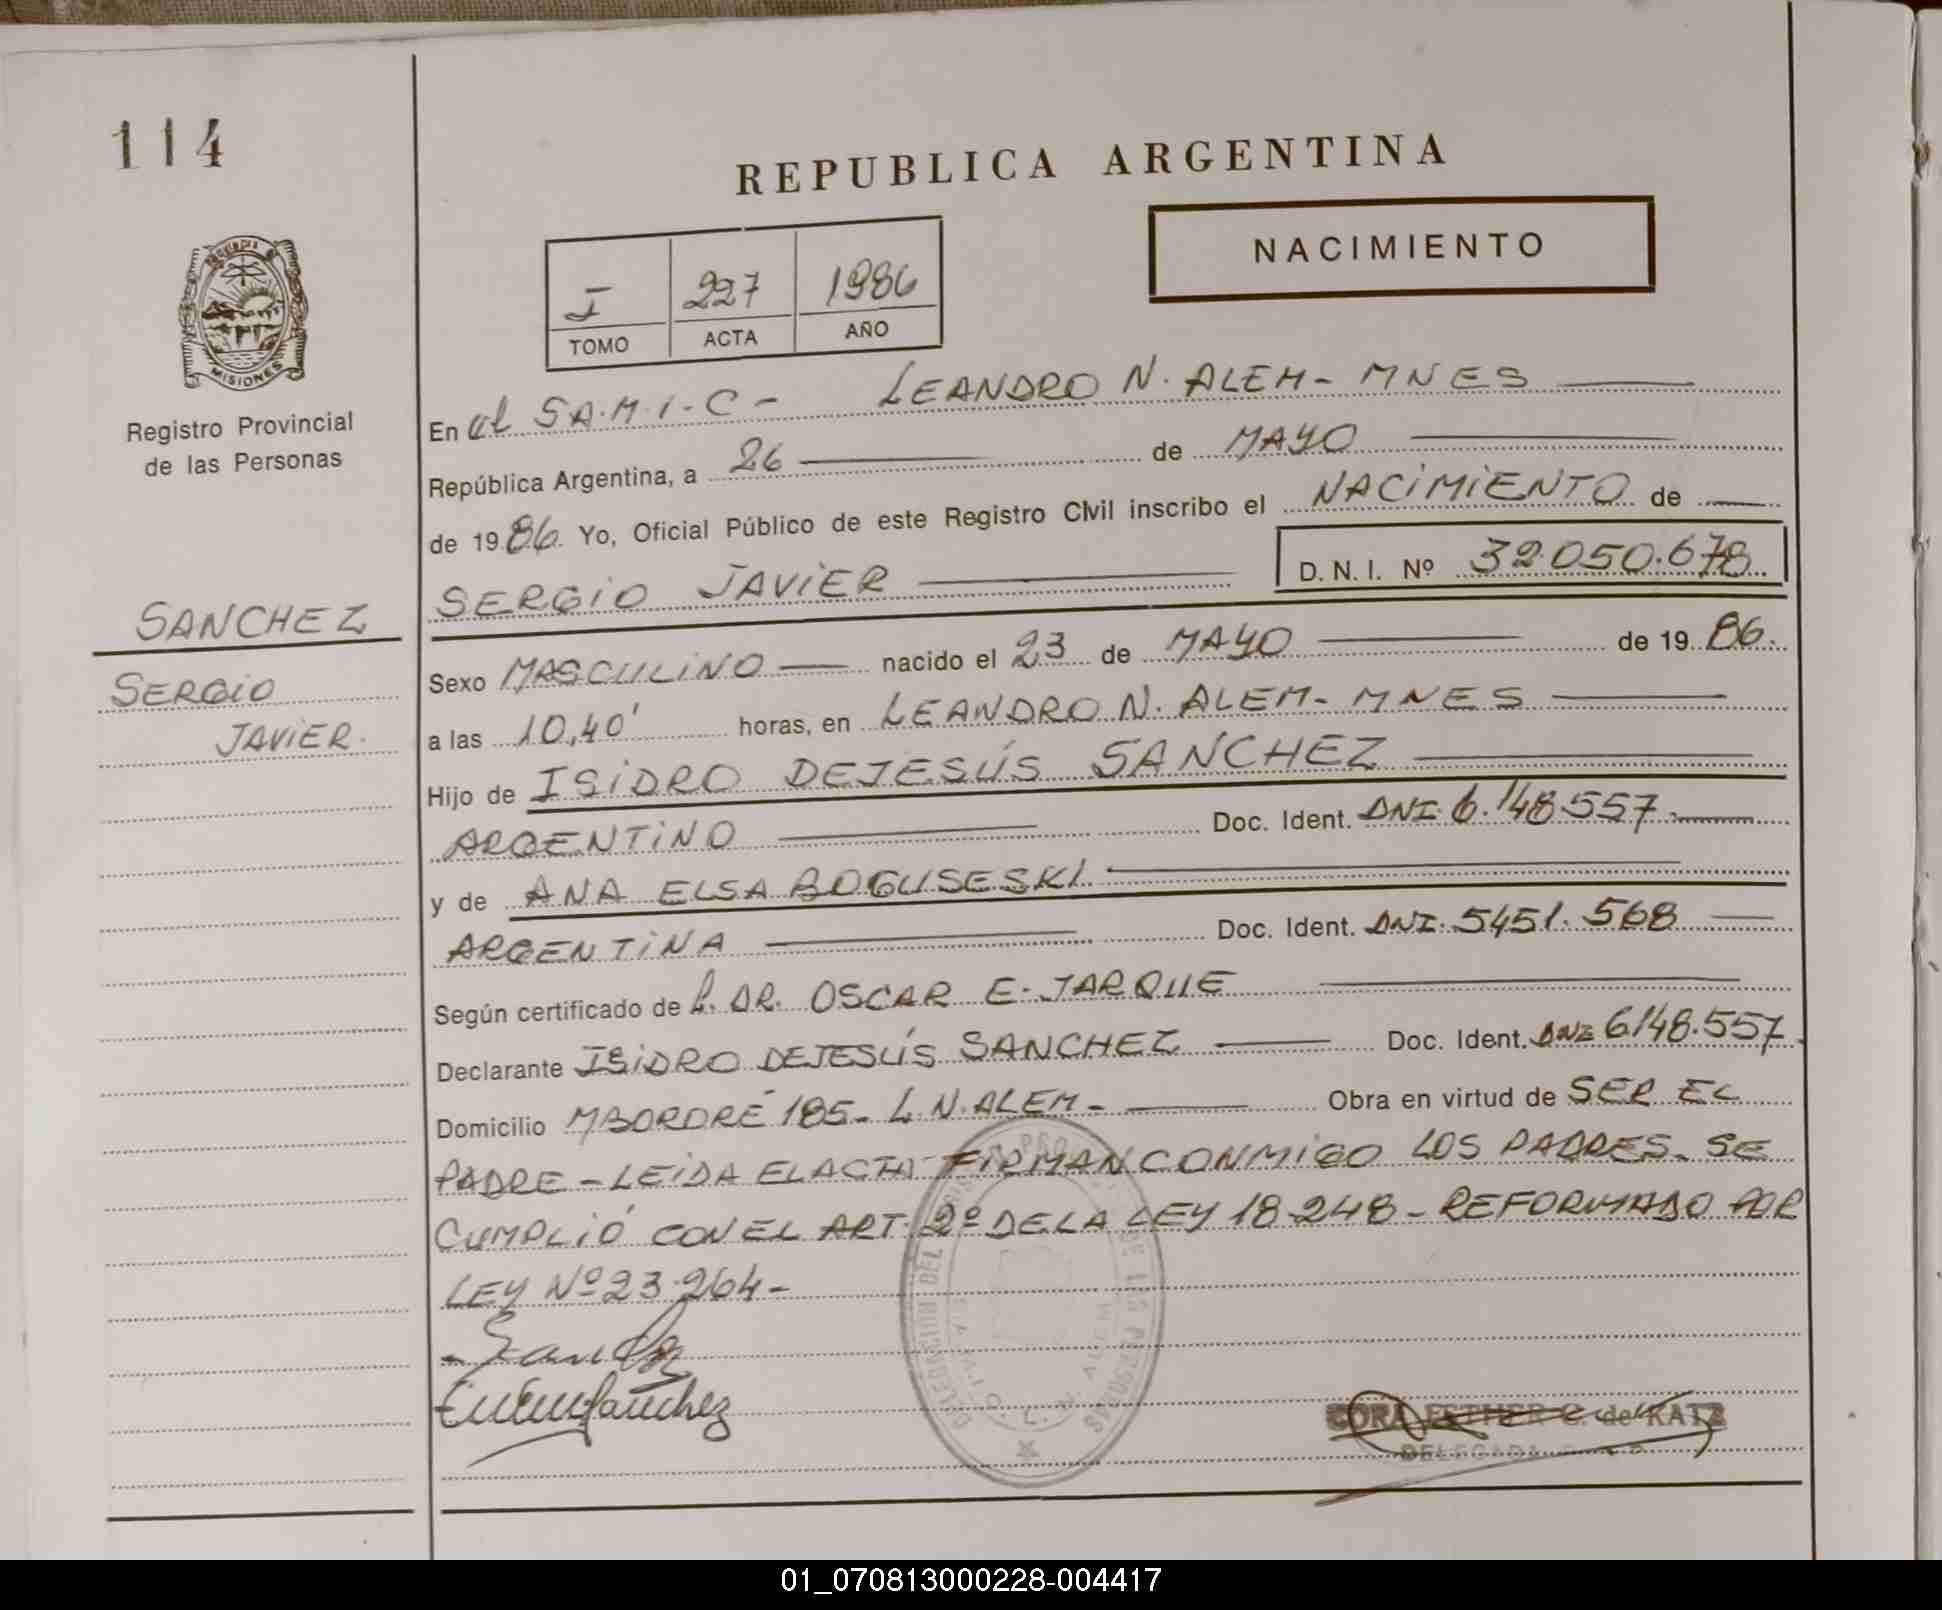 114
REPUBLICA ARGENTINA
NACIMIENTO
I 227 1986
TOMO ACTA AÑO
PROVINCIA DE
MISIONES
Registro Provincial
de las Personas
SANCHEZ
SERGIO
JAVIER.
En el SA.M.I.C- LEANDRO N. ALEM- MNES
República Argentina, a 26 de MAYO
de 1986. Yo, Oficial Público de este Registro Civil inscribo el NACIMIENTO de
SERGIO JAVIER D. N. I. Nº 32.050.678
Sexo MASCULINO nacido el 23 de MAYO de 1986.
a las 10,40' horas, en LEANDRO N. ALEM- MNES
Hijo de ISIDRO DEJESÚS SANCHEZ
ARGENTINO Doc. Ident. DNI. 6.148.557
y de ANA ELSA BOGUSESKI
ARGENTINA Doc. Ident. DNI. 5451.568
Según certificado de l. DR. OSCAR E. JARQUE
Declarante ISIDRO DEJESÚS SANCHEZ Doc. Ident. DNI 6.148.557
Domicilio MBORORÉ 185- L.N.ALEM- Obra en virtud de SER EL
PADRE - LEIDA EL ACTA FIRMAN CONMIGO LOS PADRES- SE
CUMPLIÓ CON EL ART. 2º DE LA LEY 18.248 - REFORMADO POR
LEY Nº 23.264-
DELEGACION DEL REGISTRO PROVINCIAL DE LAS PERSONAS
L. N. ALEM
CORA ESTHER C. de KATZ
DELEGADA
01_070813000228-004417